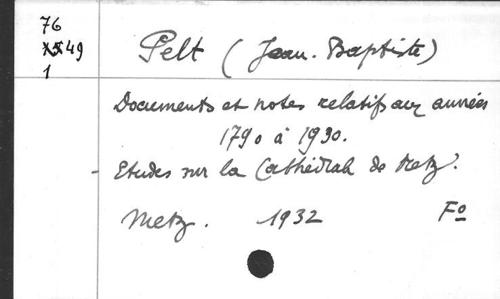 76
49
1
Pelt (Jean-Baptiste)
Documents et notes relatifs aux années
1790 à 1930.
- Etudes sur la Cathédrale de Metz.
Metz. 1932 Fo